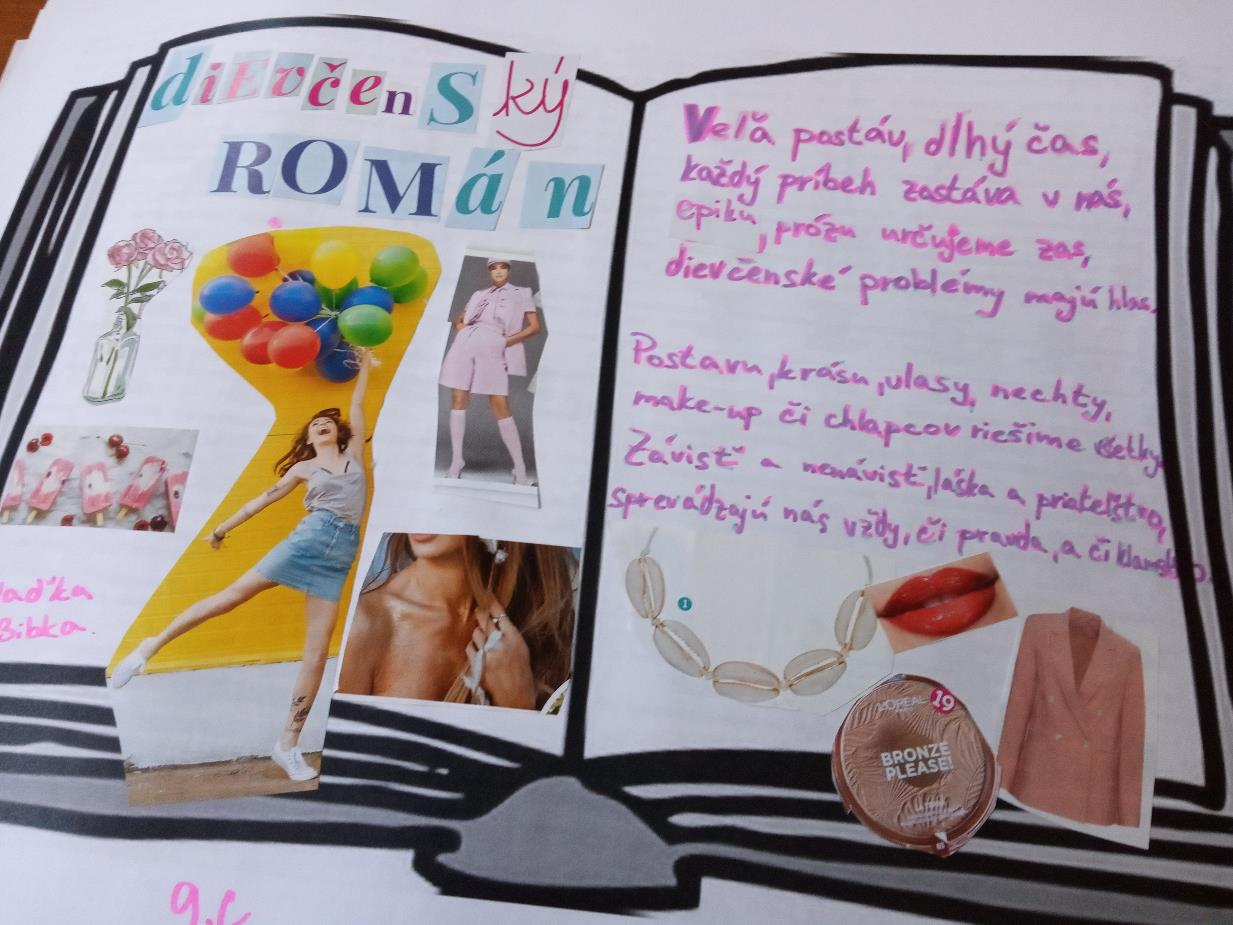 diEvčenSký
ROMán
Veľa postáv, dlhý čas,
každý príbeh zastáva v nás,
epiku, prózu určujeme zas,
dievčenské problémy majú hlas.
Postavu, krásu, vlasy, nechty,
make-up či chlapcov riešime všetky.
Závisť a nenávisť, láska a priateľstvo,
sprevádzajú nás vždy, či pravda, a či klamstvo.
1
L'ORÉAL
19
BRONZE
PLEASE!
aďka
Bibka.
9.C